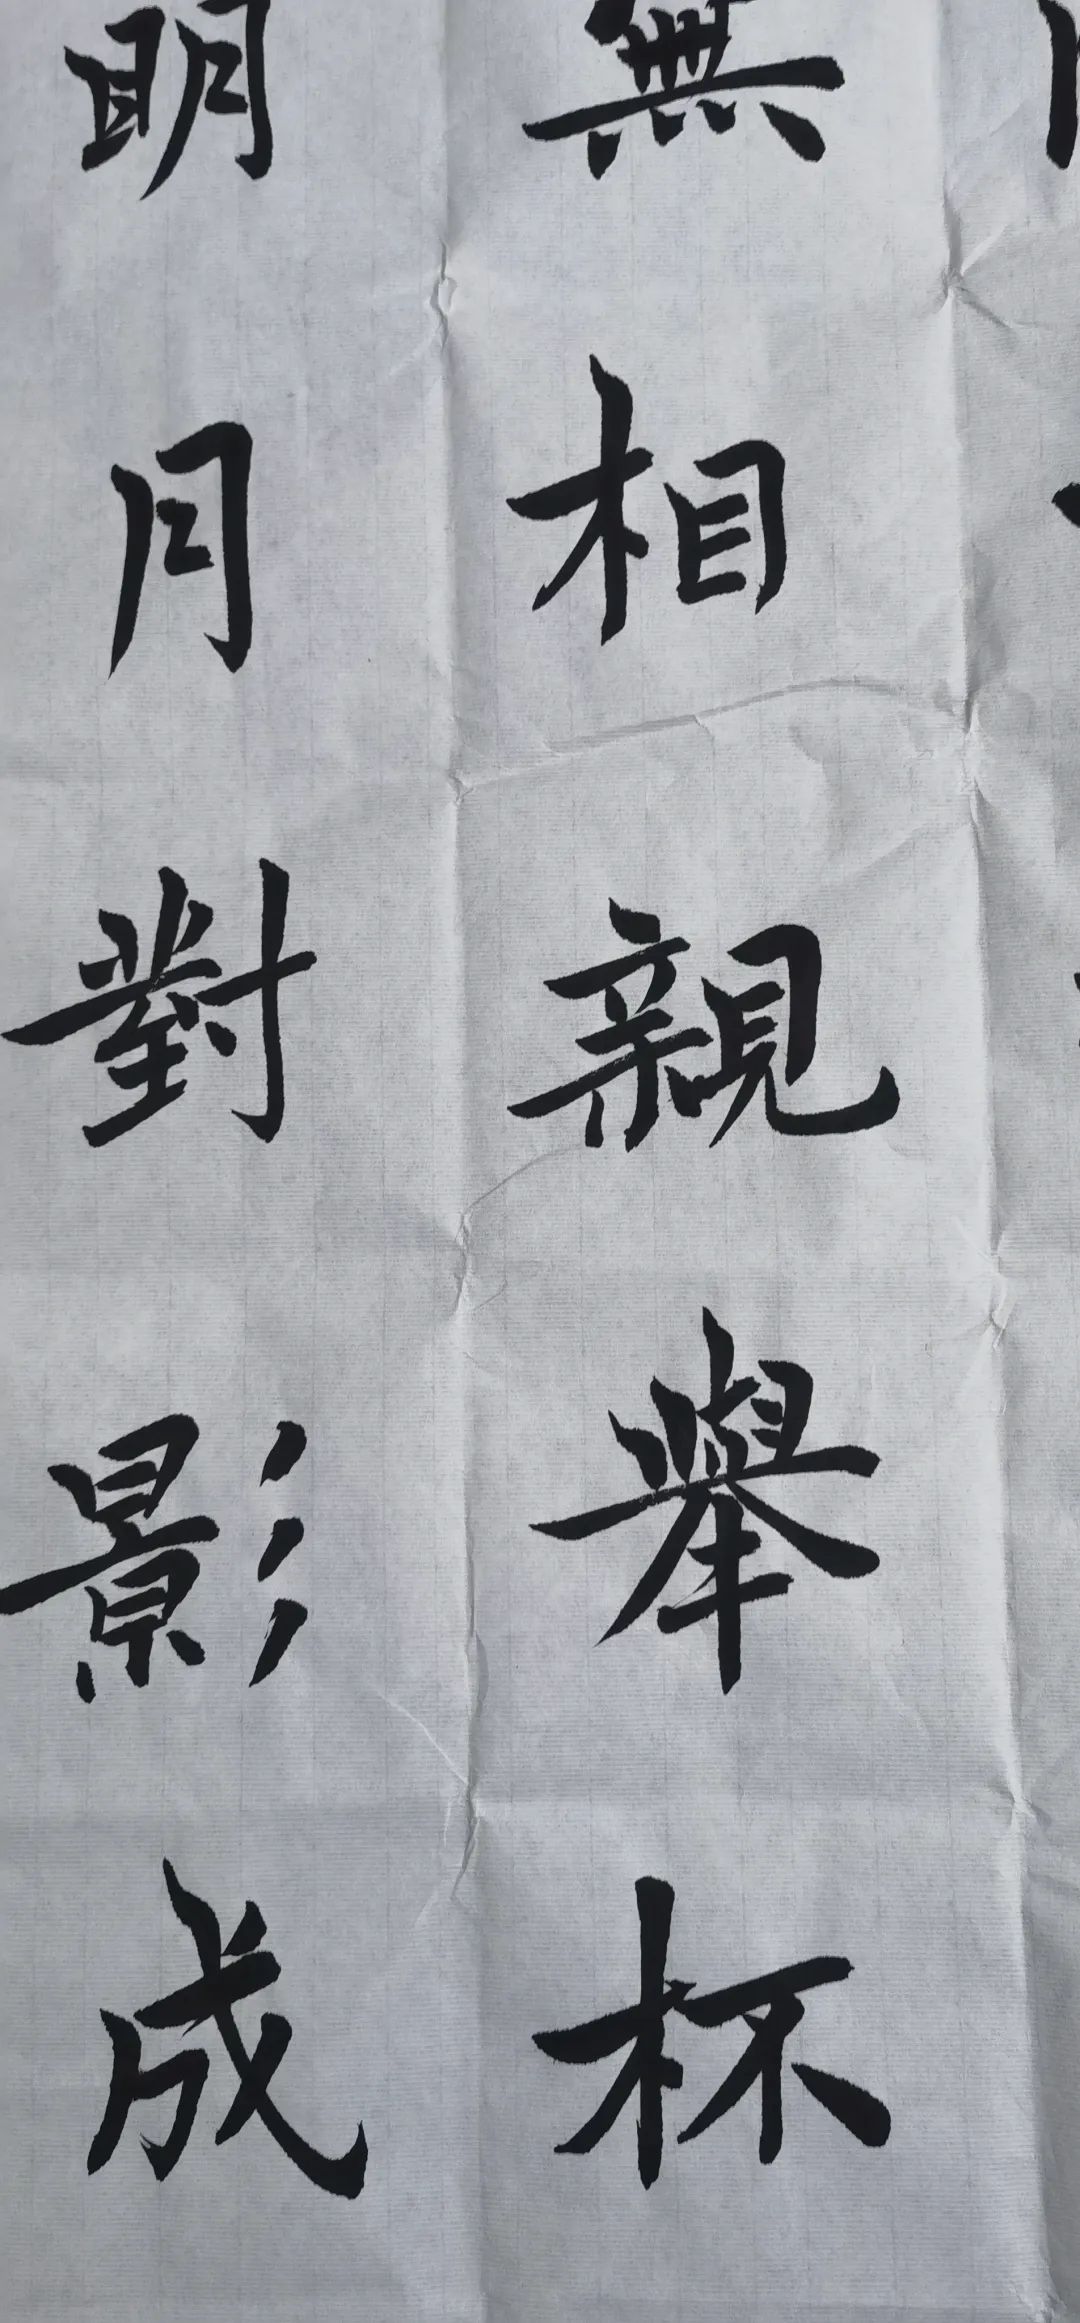 無相親舉杯
明月對影成